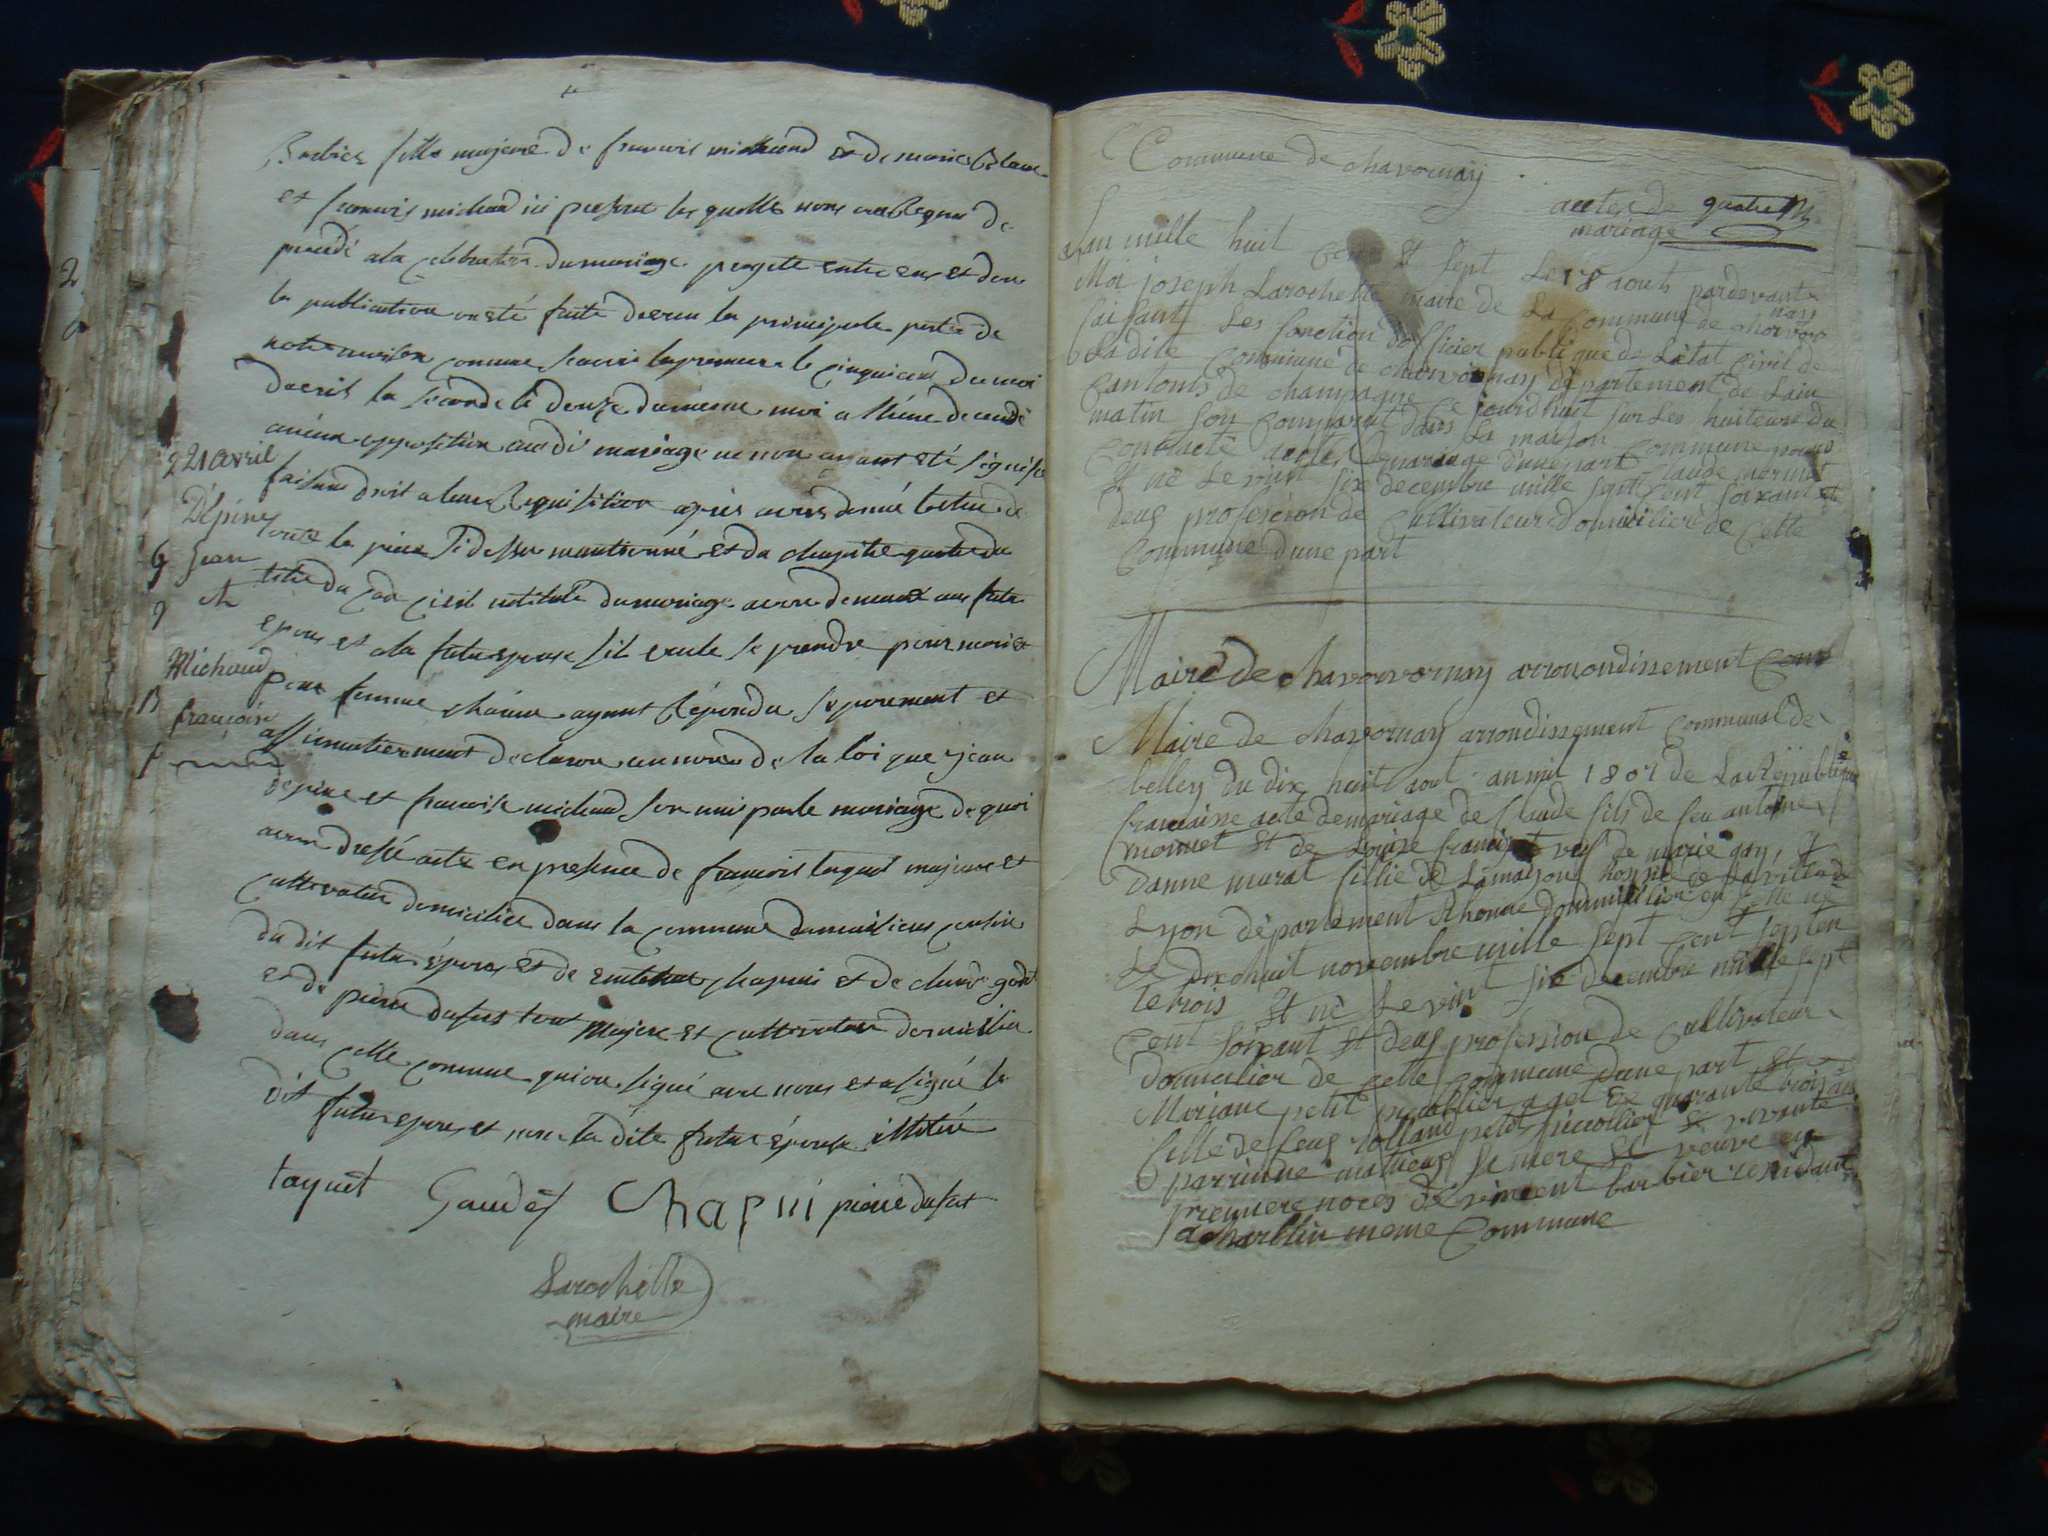 fille majeure de francois michaud et de marie
et francois michaud ici present les quelle nous on requis de
procédé a la celebration du mariage projetté entre eux et don
la publication on été faite devan la principale porte de
notre maison commune scavoir la premiere le cinquieme du moi
davril la seconde le douze du même moi a l'heure de
aucune opposition audit mariage ne nous ayant eté signifié
faisant droit a leur requisition après avoir donné lecture de
toute le piece si dessu mentionné et du chapitre quatre du
titre du code civil intitulé du mariage avon demandé au futur
epoux et a la future epouse sil veule se prendre pour mari et
pour femme chacun ayant répondu séparement et
affirmativement declaron au nom de la loi que jean
depine et francoise michaud son uni par le mariage de quoi
avon dressé acte en presence de francois taquet majeure et
cultivateur domicilié dans la commune
du dit futur époux et de chapui et de
et de pierre dufour tous majeur et cultivateur domicilié
dans cette commune qui on signé avec nous et a signé le
dit futur epoux et non la dite future épouse illitéré
taquet Chapui pierre
Larochette
maire
21 avril
Dépine
Jean
et
Michaud
françoise
Commune de chavornay
actes de
mariage
Lan mille huit cent et sept Le 18 aout pardevant
Moi joseph Larochette maire de La commune de chavor
nay
faisant Les fonction dofficier publique de Létat Civil de
Ladite commune de chavornay département de Lain
Cantonts de champagne ce jourdhuit sur Les huiteure du
matin son comparut dans La maison commune pour
contracté actes de mariage dune part Claude monnet
et né Le vint six decembre mille sept cent soixant et
deux profession de cultivateur domicilier de cette
Commune dune part
Maire de chavorvornay arronondissement Com
Maire de chavornay arrondissement communal de
belley du dix huit aout an mil 1807 de La République
francaise acte de mariage de claude fils de feu antoine
monnet et de Louise francist veuf de marie
Danne murat fillie de Lamaison hospice de La ville de
Lyon département Rhonne dommicilier en cette né
Le dix huit novembre mille sept cent septen
te trois et né Le vint six decembre mille sept
cent soixant et deux profession de cultivateur
domicilier de cette commune dune part et
Mariane petit aget De quarante trois an
fille de feus rolland petit et vivante
parrinne mathieus sa mere et veuve en
premiere noces de vincent barbier residant
a charblin meme Commune